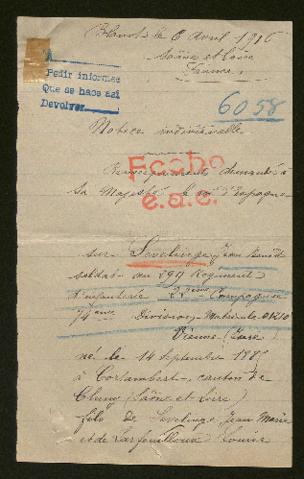 Blanot le 6 Avril 1916
Saône et Loire
France
A
Pedir informes
Que se hace asi
Devolver
6058
Notice individuelle
Renseignements demandés à
Sa Majesté le roi d'Espagne
Fcoho
e.a.e.
sur Sevelinge, Jean Benoit
soldat au 299 Régiment
d'infanterie 22ème Compagnie
74ème Division, Matricule 01210
Vienne (Isère)
né le 14 Septembre 188
à Cortambert, canton de
Cluny (Saône et Loire)
fils de Sevelinge Jean Marie
et de Lasfouilloux Louise